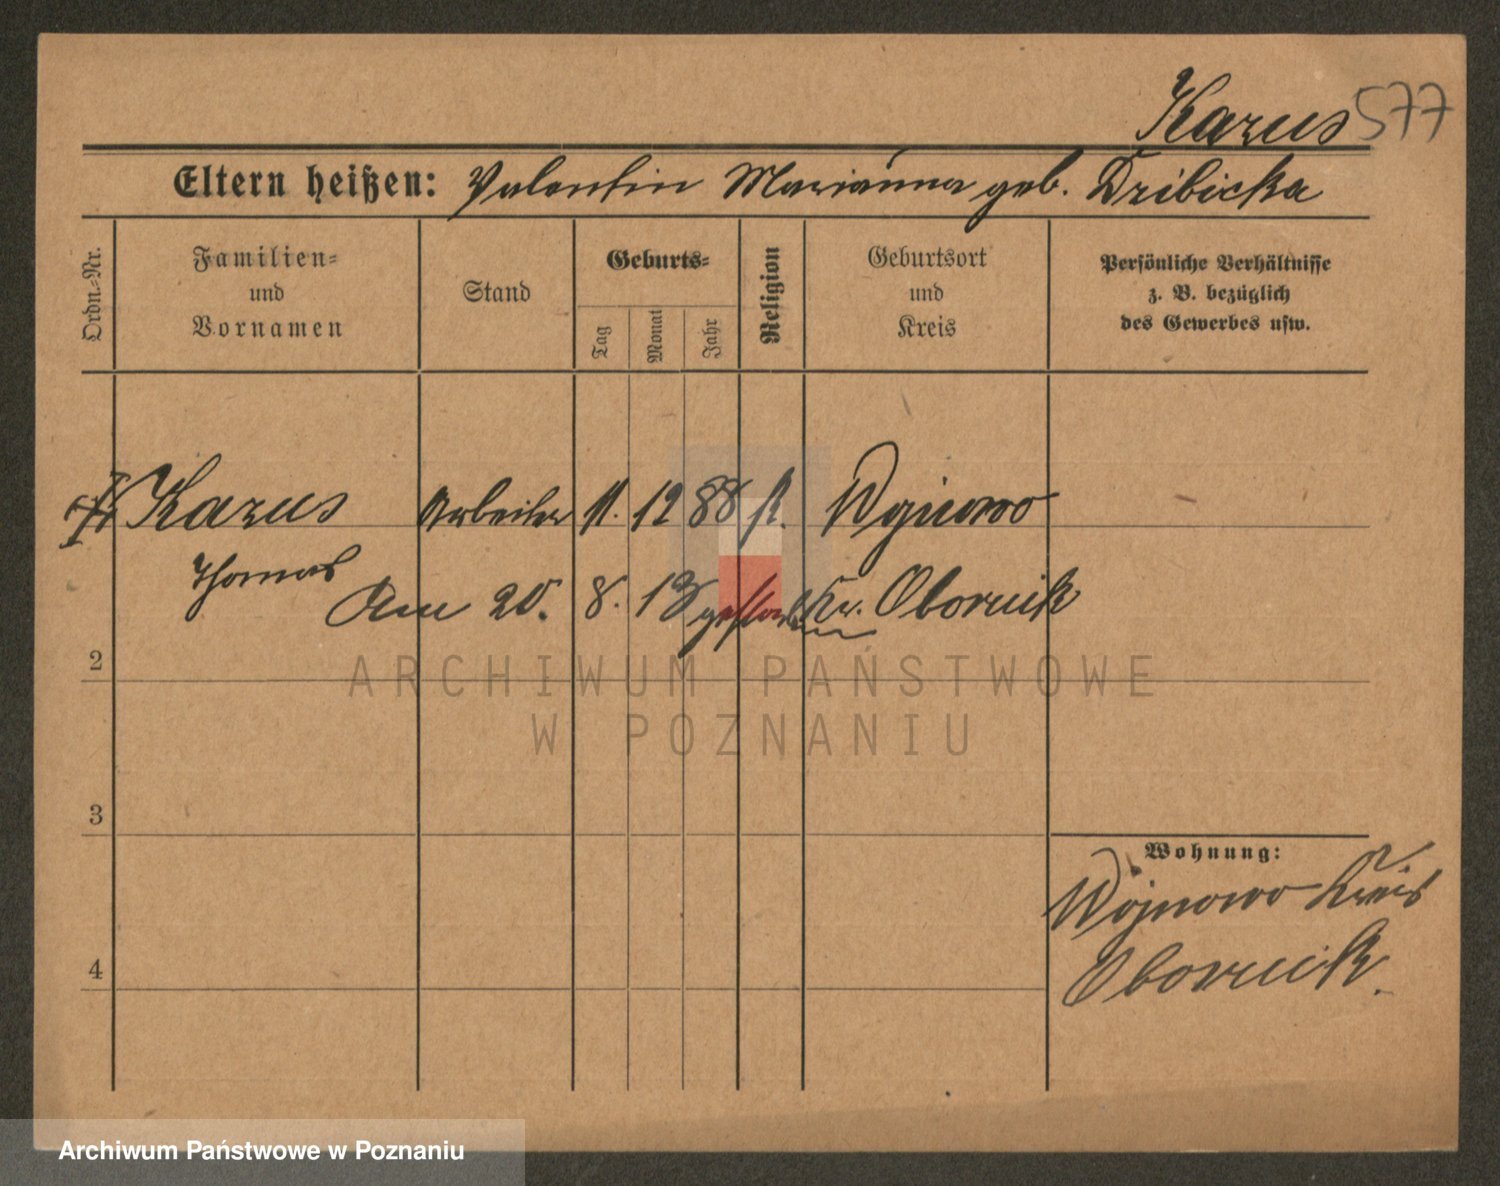 Kazus 577
Eltern heißen: Valentin Marianna geb. Dzibicka
Ordn.=Nr.
Familien=
und
Vornamen
Stand
Geburts=
Tag
Monat
Jahr
Religion
Geburtsort
und
Kreis
Persönliche Verhältnisse
z. B. bezüglich
des Gewerbes usw.
Kazus Arbeiter 11. 12 88 k. Wojnowo
Thomas
Am 20. 8. 13 gestorben Kr. Obornik
2
3
4
Wohnung:
Wojnowo Kreis
Obornik.
ARCHIWUM PAŃSTWOWE
W POZNANIU
Archiwum Państwowe w Poznaniu